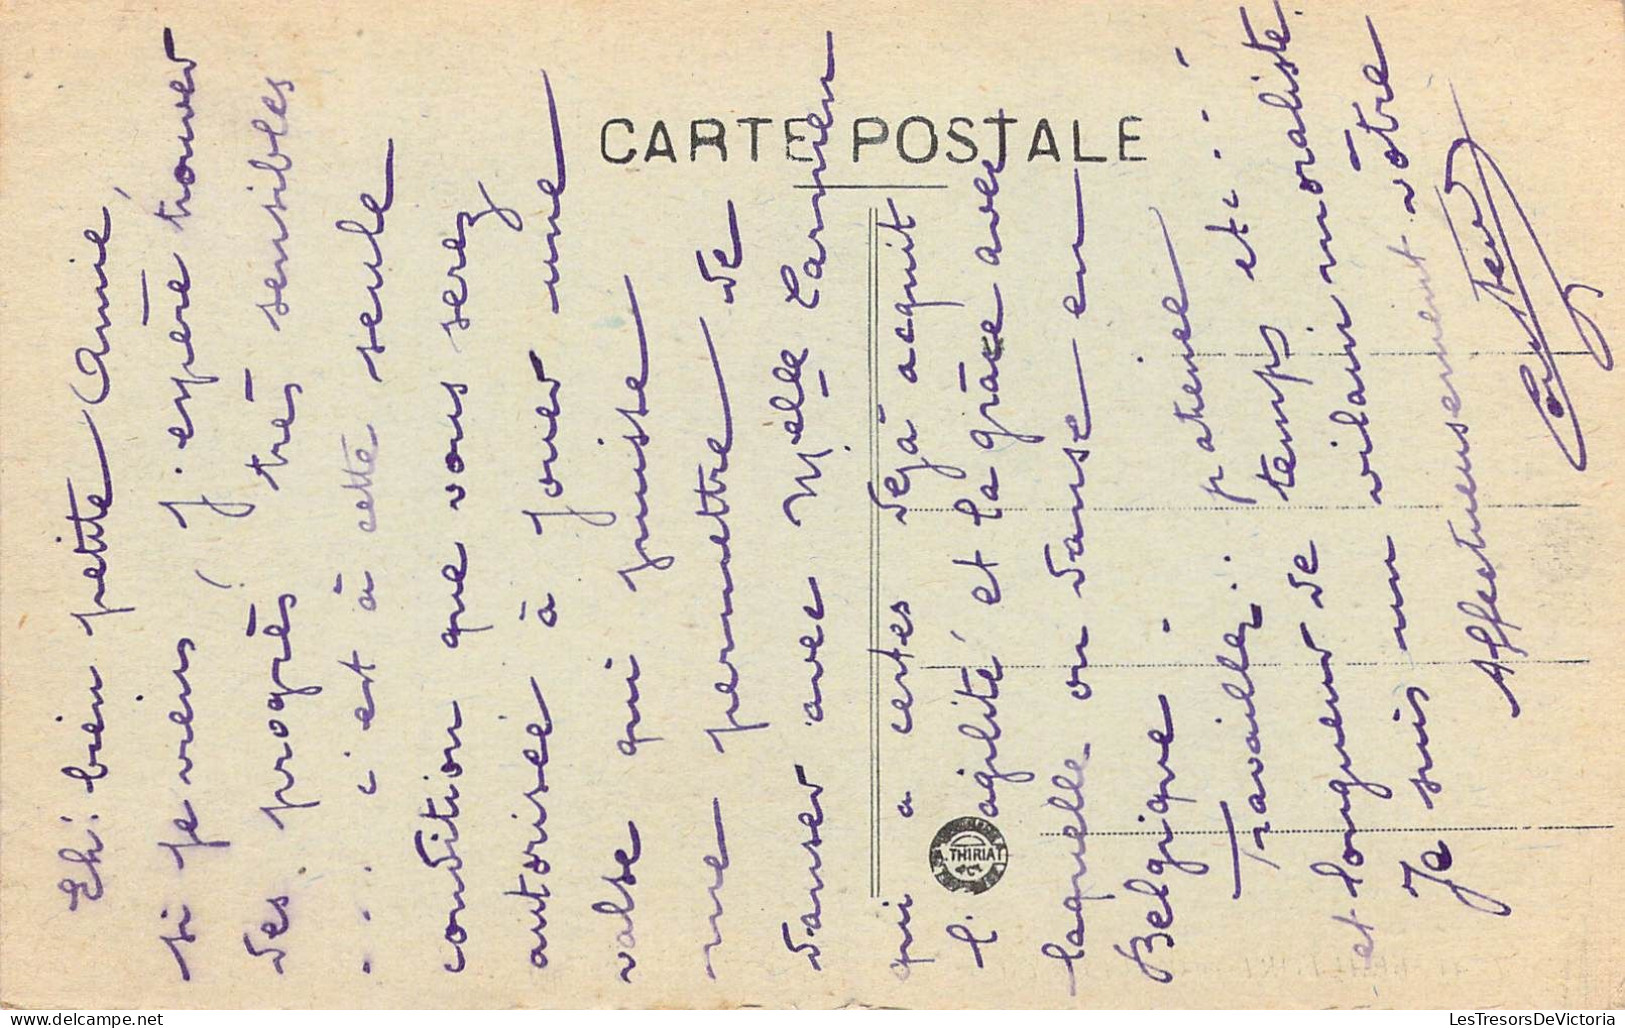 CARTE POSTALE
Eh! bien petite Amie,
si je viens, j'espère trouver
des progrès très sensibles
... c'est à cette seule
condition que vous serez
autorisé à jouer une
valse qui puisse
me permettre de
danser avec Melle Carmen
qui a certes dejà acquit
l'agilité, et la grâce avec
laquelle on danse en
Belgique.
Travaillez.. patience
et longueur de temps et....
Je suis un vilain moraliste.
Affectueusement vôtre
THIRIAT
LesTresorsDeVictoria